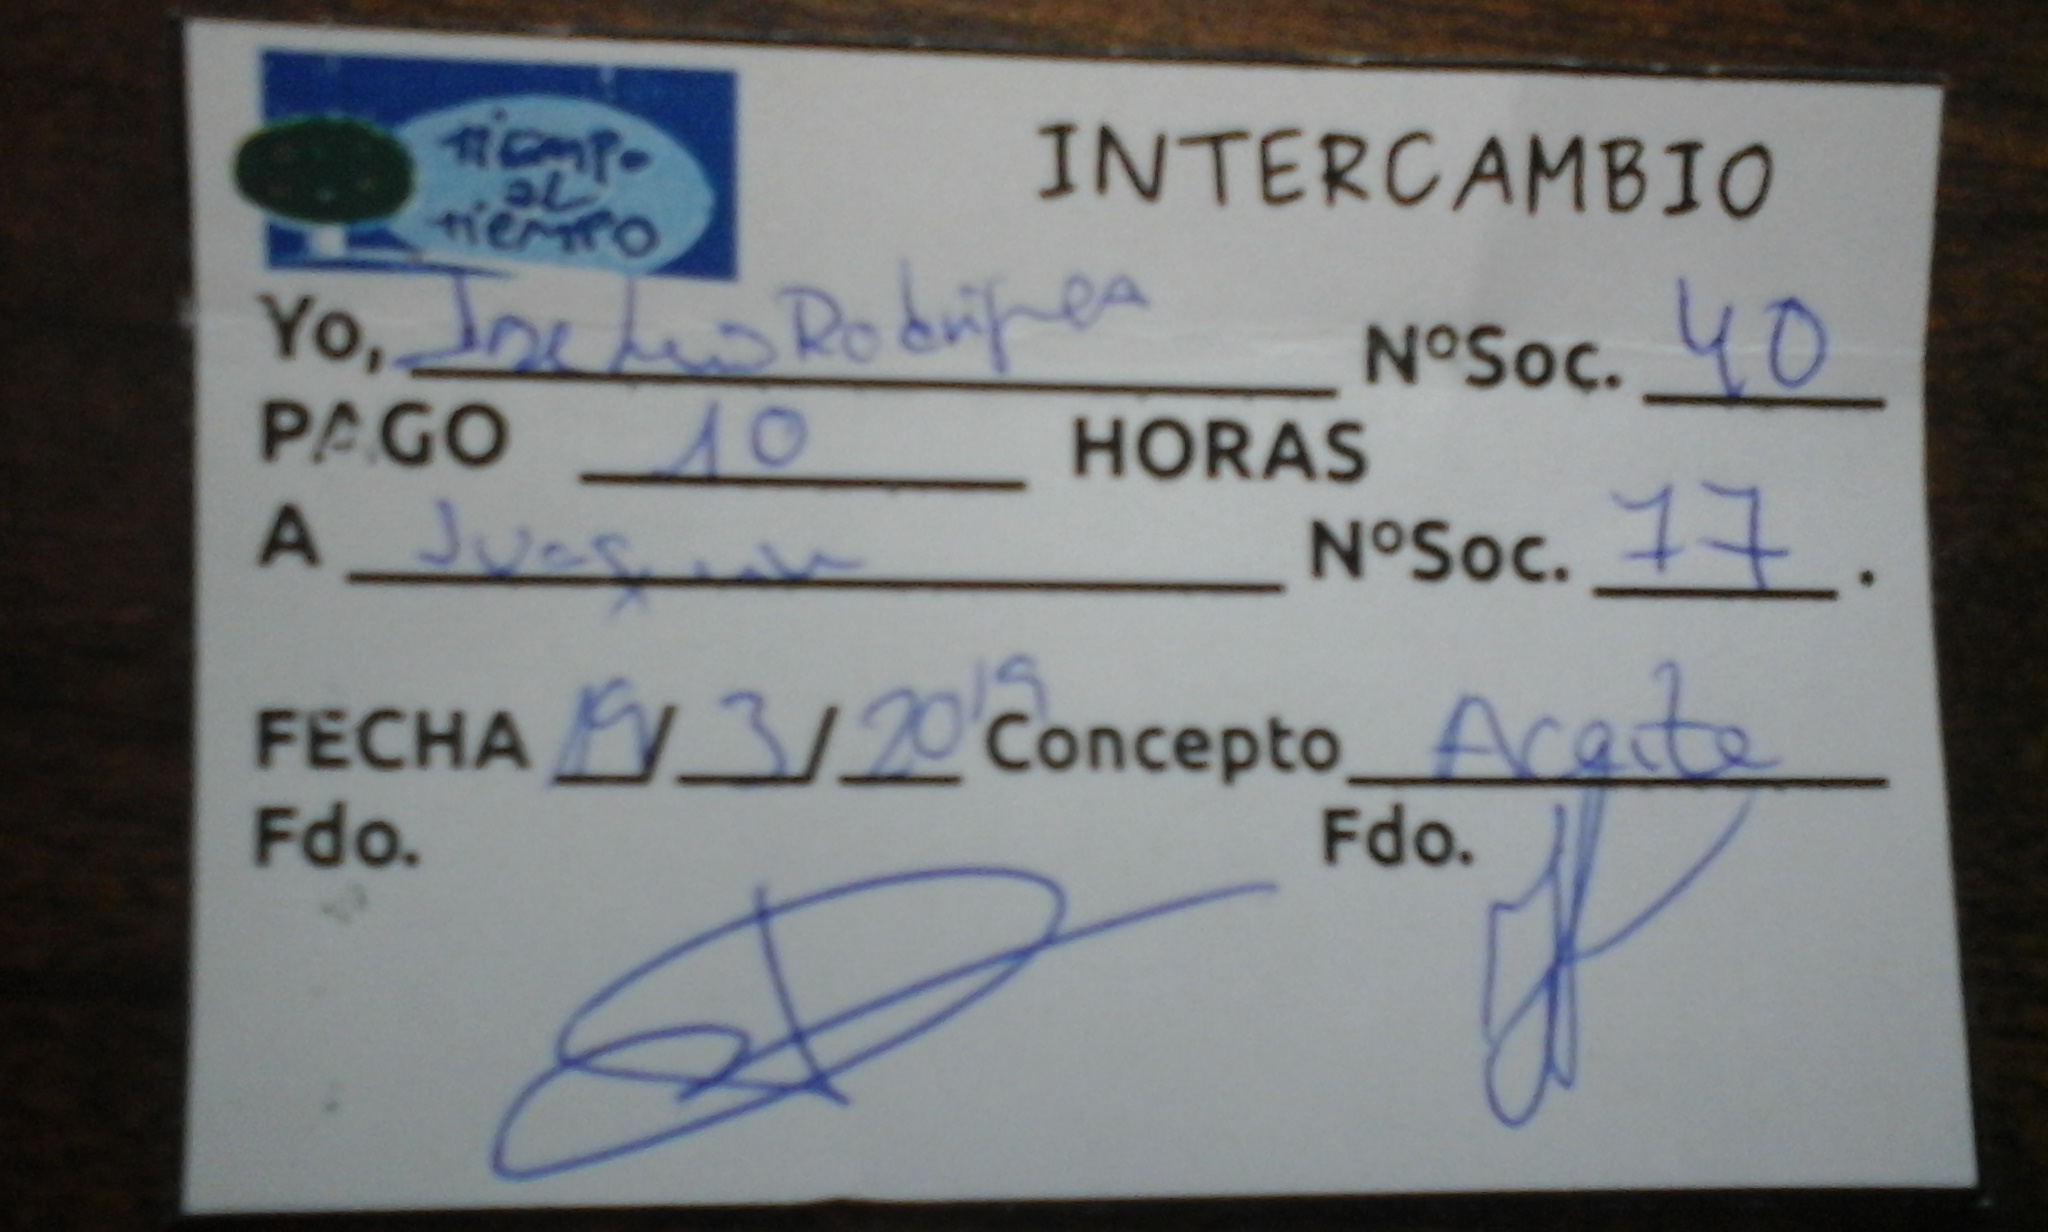 Tiempo
al
tiempo
INTERCAMBIO
Yo, Jose Luis Rodriguez NºSoc. 40
PAGO 10 HORAS
A Juaquin NºSoc. 77.
FECHA 19/3/2019 Concepto Aceite
Fdo. Fdo.